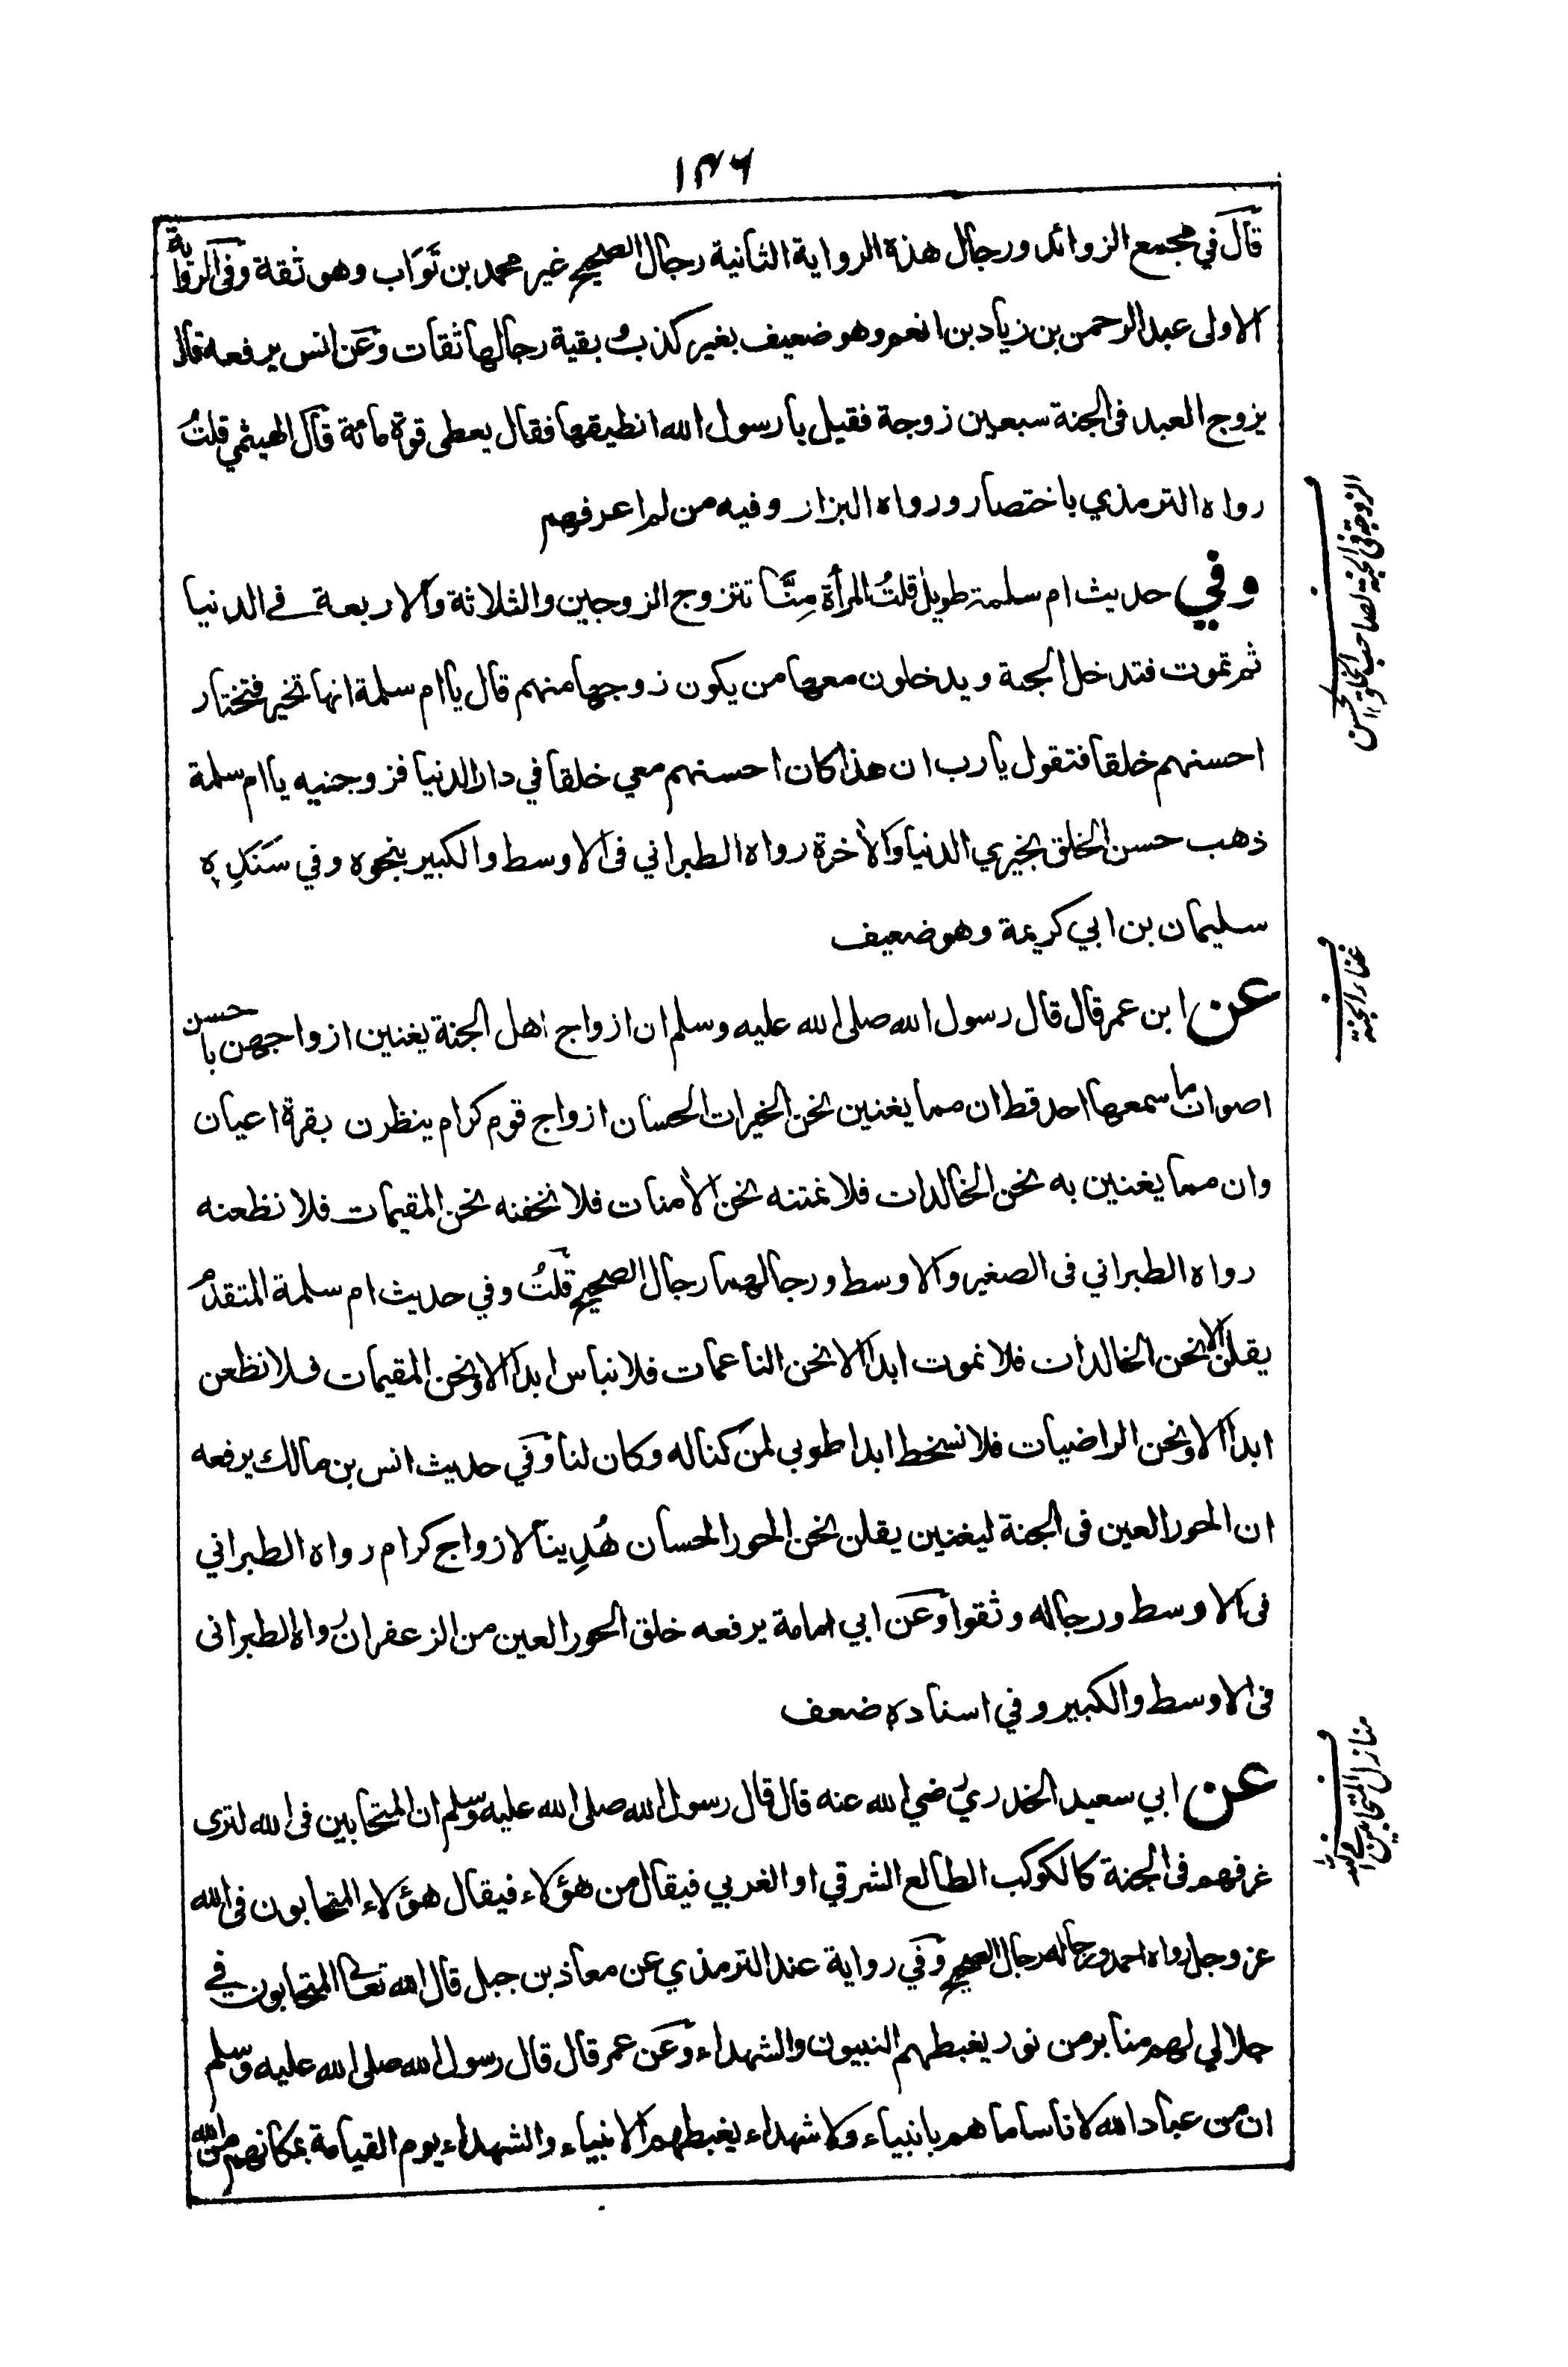 ١٣٦
قال في مجمع الزوائد ورجال هذه الرواية الثانية رجال الصحيح غير محمد بن ثواب وهو ثقة وفى الرواية
الاولى عبد الرحمن بن زياد بن انعم وهو ضعيف بغير كذب وبقية رجالها ثقات وعن انس يرفعه قال
يزوج العبد فى الجنة سبعين زوجة فقيل يا رسول الله انطيقها فقال يعطى قوة مائة قال الهيثمي قلت
رواه الترمذي باختصار ورواه البزار وفيه من لم اعرفهم
وفي حديث ام سلمة طويل قلت المرأة منا تتزوج الزوجين والثلاثة والاربعة في الدنيا
ثم تموت فتدخل الجنة ويدخلون معها من يكون زوجها منهم قال يا ام سلمة انها تخير فتختار
احسنهم خلقا فتقول يا رب ان هذا كان احسنهم معي خلقا في دار الدنيا فزوجنيه يا ام سلمة
ذهب حسن الخلق بخيري الدنيا والأخرة رواه الطبراني فى الاوسط والكبير بنحوه وفي سنده
سليمان بن ابي كريمة وهو ضعيف
عن ابن عمر قال قال رسول الله صلى الله عليه وسلم ان ازواج اهل الجنة يغنين ازواجهن باحسن
اصوات ما سمعها احد قط ان مما يغنين نحن الخيرات الحسان ازواج قوم كرام ينظرن بقرة اعيان
وان مما يغنين به نحن الخالدات فلا نمتنه نحن الأمنات فلا نخفنه نحن المقيمات فلا نظعنه
رواه الطبراني فى الصغير والاوسط ورجالهما رجال الصحيح قلت وفي حديث ام سلمة المتقدم
يقلن الا نحن الخالدات فلا نموت ابدا الا نحن الناعمات فلا نبأس ابدا الا ونحن المقيمات فلا نظعن
ابدا الا ونحن الراضيات فلا نسخط ابدا طوبى لمن كنا له وكان لنا وفي حديث انس بن مالك يرفعه
ان الحور العين فى الجنة ليغنين يقلن نحن الحور الحسان هُدِينا لازواج كرام رواه الطبراني
فى الاوسط ورجاله وثقوا وعن ابي امامة يرفعه خلق الحور العين من الزعفران رواه الطبرانى
فى الاوسط والكبير وفي اسناده ضعف
عن ابي سعيد الخدري رضي الله عنه قال قال رسول الله صلى الله عليه وسلم ان المتحابين فى الله لترى
غرفهم فى الجنة كالكوكب الطالع الشرقي او الغربي فيقال من هؤلاء فيقال هؤلاء المتحابون فى الله
عز وجل رواه احمد ورجاله رجال الصحيح وفي رواية عند الترمذي عن معاذ بن جبل قال الله تعالى المتحابون في
جلالي لهم منابر من نور يغبطهم النبيون والشهداء وعن عمر قال قال رسول الله صلى الله عليه وسلم
ان من عباد الله لاناسا ما هم بانبياء ولا شهداء يغبطهم الانبياء والشهداء يوم القيامة بمكانهم من الله
الزوجة فى الجنة لصاحب الخلق الحسن
غناء الجنة
منازل المتحابين في الله